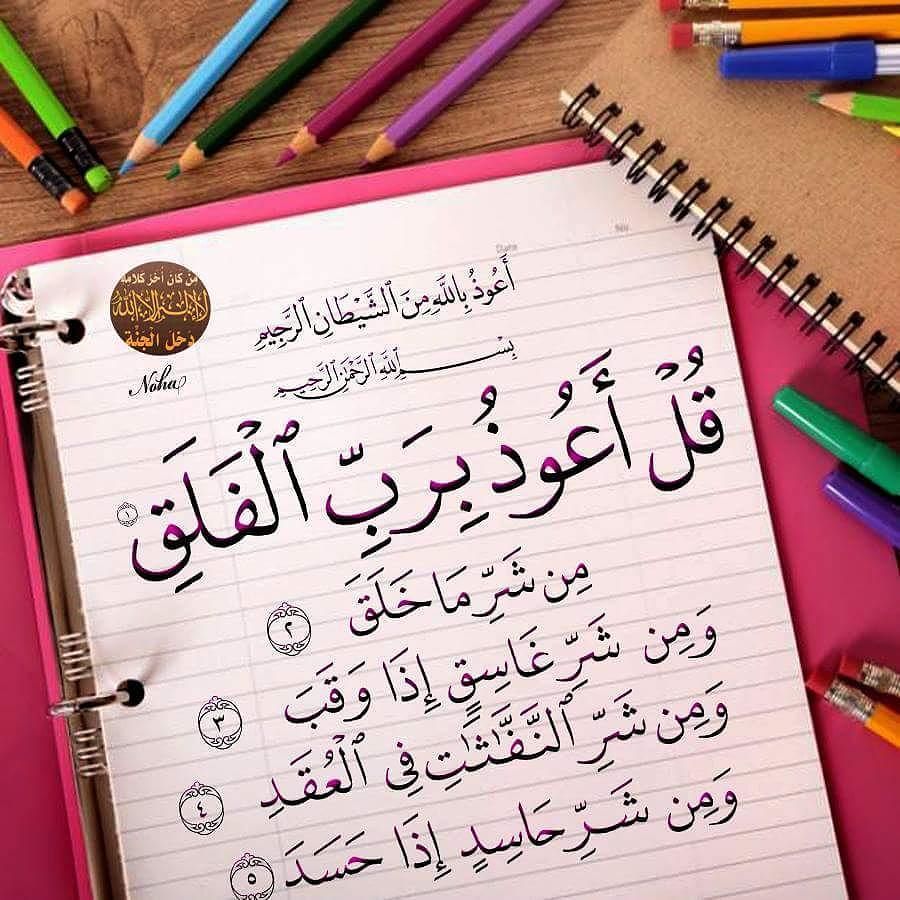 Date
No
من كان آخر كلامه
لا إله إلا الله
دخل الجنة
Noha
أَعُوذُ بِاللَّهِ مِنَ ٱلشَّيْطَانِ ٱلرَّجِيمِ
بِسْمِ ٱللَّهِ ٱلرَّحْمَٰنِ ٱلرَّحِيمِ
قُلْ أَعُوذُ بِرَبِّ ٱلْفَلَقِ ١
مِن شَرِّ مَا خَلَقَ ٢
وَمِن شَرِّ غَاسِقٍ إِذَا وَقَبَ ٣
وَمِن شَرِّ ٱلنَّفَّٰثَٰتِ فِى ٱلْعُقَدِ ٤
وَمِن شَرِّ حَاسِدٍ إِذَا حَسَدَ ٥